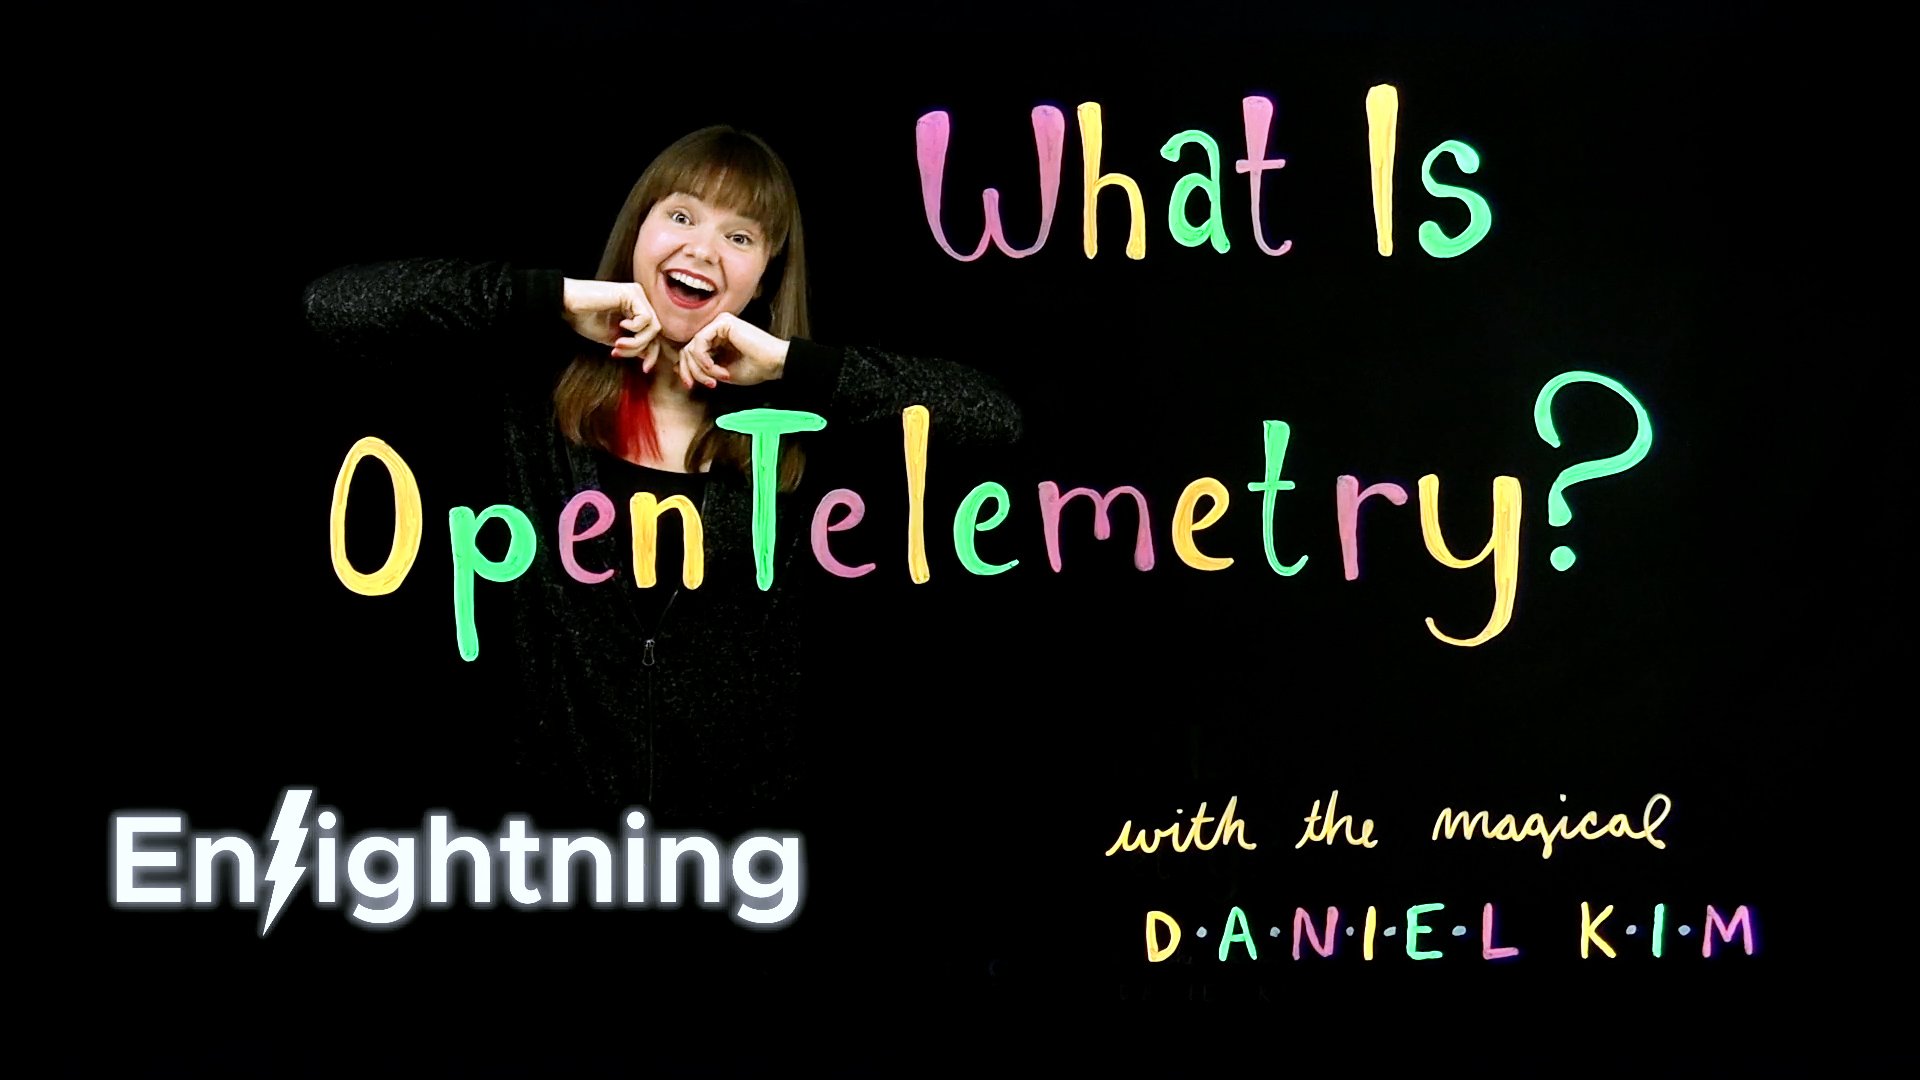 What Is
OpenTelemetry?
Enlightning
with the magical
D·A·N·I·E·L K·I·M